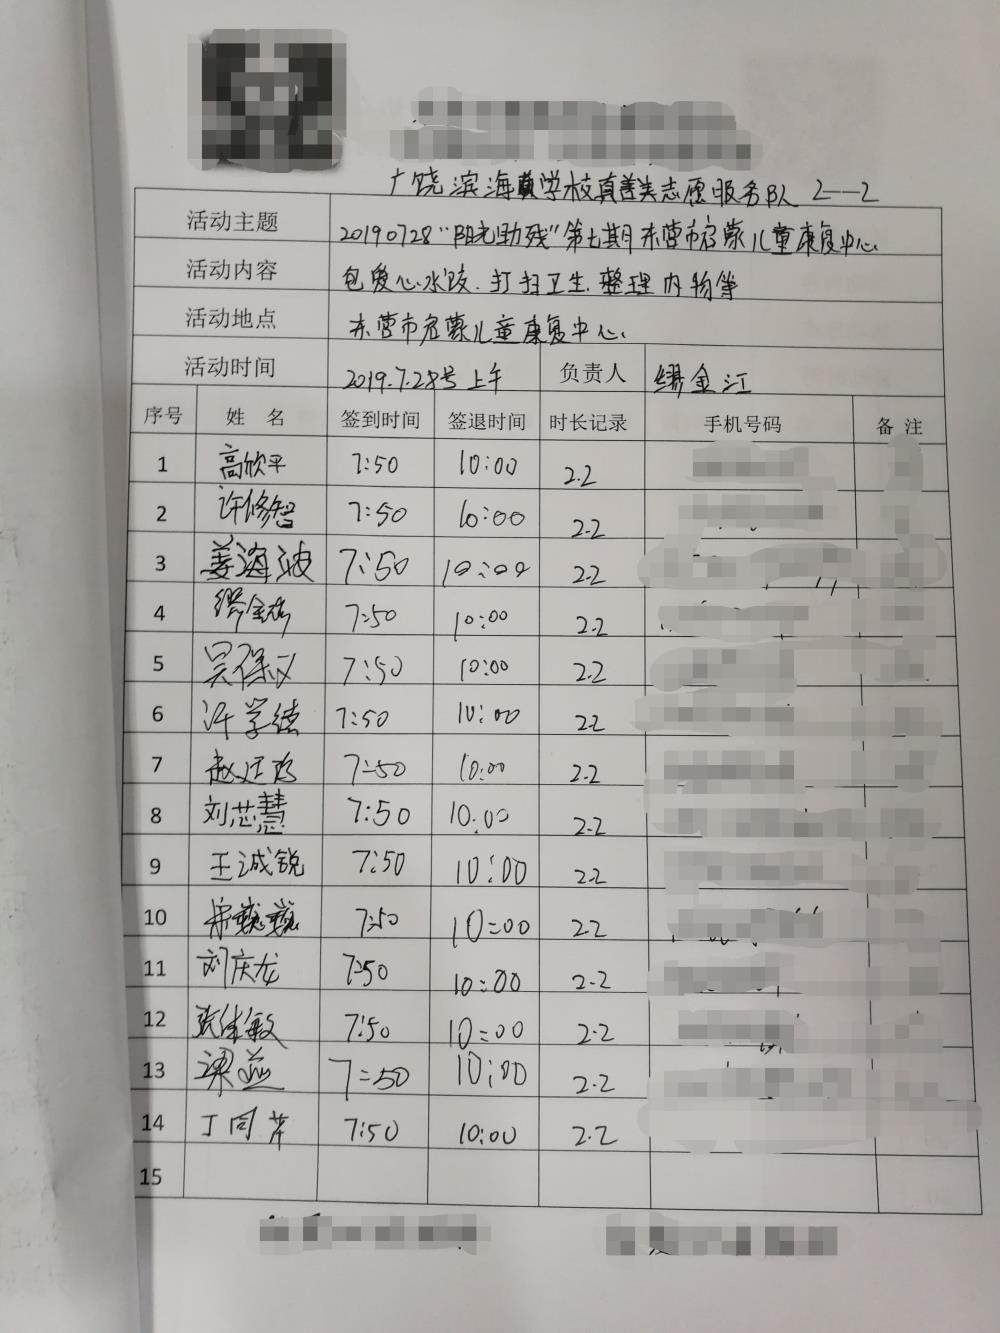 广饶滨海 学校真善美志愿服务队 2—2
活动主题 20190728“阳光助残”第七期东营市启蒙儿童康复中心
活动内容 包爱心水饺.打扫卫生.整理内物等
活动地点 东营市启蒙儿童康复中心.
活动时间 2019.7.28号上午 负责人 缪金江
序号 姓 名 签到时间 签退时间 时长记录 手机号码 备注
1 高欣平 7:50 10:00 2.2
2 许修智 7:50 10:00 2.2
3 姜海波 7:50 10:00 2.2
4 7:50 10:00 2.2
5 吴保义 7:50 10:00 2.2
6 许学德 7:50 10:00 2.2
7 7:50 10:00 2.2
8 刘芯慧 7:50 10:00 2.2
9 王诚锐 7:50 10:00 2.2
10 7:50 10:00 2.2
11 刘庆龙 7:50 10:00 2.2
12 7:50 10:00 2.2
13 7:50 10:00 2.2
14 丁同芹 7:50 10:00 2.2
15